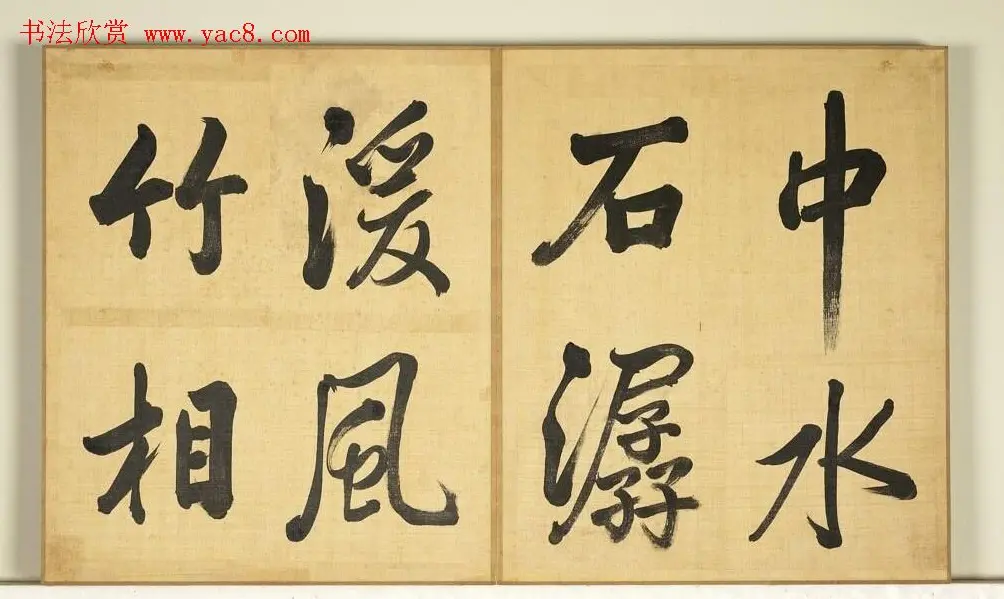 书法欣赏 www.yac8.com
中水
石潺
湲風
竹相